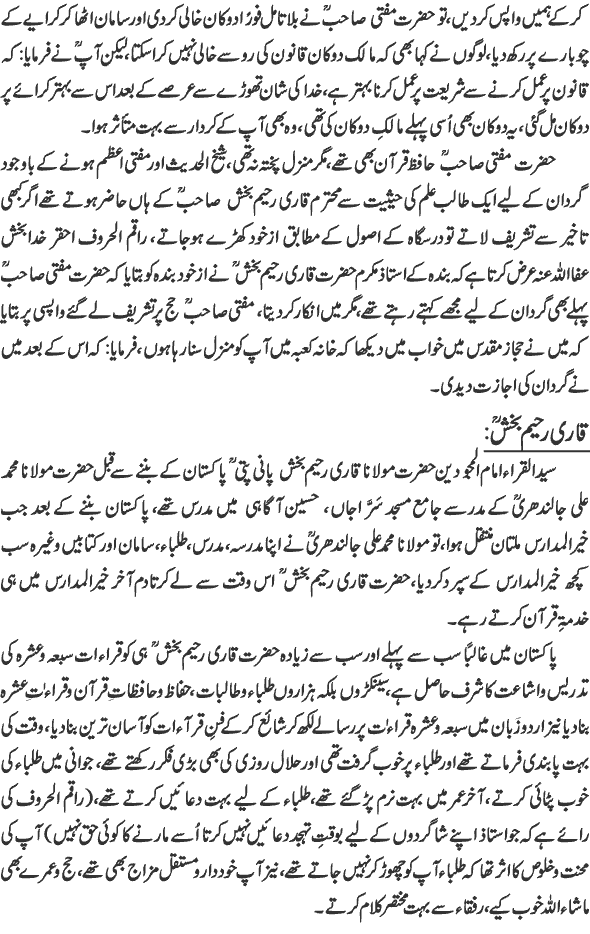 کر کے ہمیں واپس کر دیں، تو حضرت مفتی صاحبؒ نے بلا تامل فوراً دوکان خالی کر دی اور سامان اٹھا کر کرایے کے
چوبارے پر رکھ دیا، لوگوں نے کہا بھی کہ مالک دوکان قانون کی رو سے خالی نہیں کرا سکتا، لیکن آپؒ نے فرمایا: کہ
قانون پر عمل کرنے سے شریعت پر عمل کرنا بہتر ہے، خدا کی شان تھوڑے سے عرصے کے بعد اس سے بہتر کرائے پر
دوکان مل گئی، یہ دوکان بھی اُسی پہلے مالکِ دوکان کی تھی، وہ بھی آپ کے کردار سے بہت متأثر ہوا۔
حضرت مفتی صاحبؒ حافظ قرآن بھی تھے، مگر منزل پختہ نہ تھی، شیخ الحدیث اور مفتی اعظم ہونے کے باوجود
گردان کے لیے ایک طالب علم کی حیثیت سے محترم قاری رحیم بخش صاحبؒ کے ہاں حاضر ہوتے تھے اگر کبھی
تاخیر سے تشریف لاتے تو درسگاہ کے اصول کے مطابق از خود کھڑے ہو جاتے، راقم الحروف احقر خدا بخش
عفا اللہ عنہ عرض کرتا ہے کہ بندہ کے استاذ مکرم حضرت قاری رحیم بخشؒ نے از خود بندہ کو بتایا کہ حضرت مفتی صاحبؒ
پہلے بھی گردان کے لیے مجھے کہتے رہتے تھے، مگر میں انکار کر دیتا، مفتی صاحبؒ حج پر تشریف لے گئے واپسی پر بتایا
کہ میں نے حجاز مقدس میں خواب میں دیکھا کہ خانہ کعبہ میں آپ کو منزل سنا رہا ہوں، فرمایا: کہ اس کے بعد میں
نے گردان کی اجازت دیدی۔
قاری رحیم بخشؒ:
سید القراء امام المجودین حضرت مولانا قاری رحیم بخش پانی پتیؒ پاکستان کے بننے سے قبل حضرت مولانا محمد
علی جالندھریؒ کے مدرسے جامع مسجد سرَّاجاں، حسین آگاہی میں مدرس تھے، پاکستان بننے کے بعد جب
خیر المدارس ملتان منتقل ہوا، تو مولانا محمد علی جالندھریؒ نے اپنا مدرسہ، مدرس، طلباء، سامان اور کتابیں وغیرہ سب
کچھ خیر المدارس کے سپرد کر دیا، حضرت قاری رحیم بخشؒ اس وقت سے لے کر تا دم آخر خیر المدارس میں ہی
خدمۃِ قرآن کرتے رہے۔
پاکستان میں غالباً سب سے پہلے اور سب سے زیادہ حضرت قاری رحیم بخشؒ ہی کو قراءات سبعہ و عشرہ کی
تدریس و اشاعت کا شرف حاصل ہے، سینکڑوں بلکہ ہزاروں طلباء و طالبات، حفاظ و حافظاتِ قرآن و قراءاتِ عشرہ
بنا دیا نیز اردو زَبان میں سبعہ و عشرہ قراءات پر رسالے لکھ کر شائع کر کے فنِ قرآءات کو آسان ترین بنا دیا، وقت کی
بہت پابندی فرماتے تھے اور طلباء پر خوب گرفت تھی اور حلال روزی کی بھی بڑی فکر رکھتے تھے، جوانی میں طلباء کی
خوب پٹائی کرتے، آخر عمر میں بہت نرم پڑ گئے تھے، طلباء کے لیے بہت دعائیں کرتے تھے، (راقم الحروف کی
رائے ہے کہ جو استاذ اپنے شاگردوں کے لیے بوقتِ تہجد دعائیں نہیں کرتا اُسے مارنے کا کوئی حق نہیں) آپ کی
محنت و خلوص کا اثر تھا کہ طلباء آپ کو چھوڑ کر نہیں جاتے تھے، نیز آپ خود دار و مستقل مزاج بھی تھے، حج و عمرے بھی
ماشاء اللہ خوب کیے، رفقاء سے بہت مختصر کلام کرتے۔